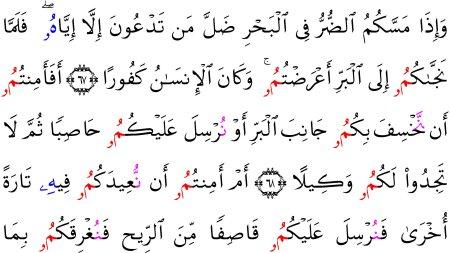 وَإِذَا مَسَّكُمُ الضُّرُّ فِى الْبَحْرِ ضَلَّ مَن تَدْعُونَ إِلَّا إِيَّاهُۥ ۖ فَلَمَّا
نَجَّىٰكُمُۥ إِلَى الْبَرِّ أَعْرَضْتُمُۥ ۚ وَكَانَ الْإِنسَٰنُ كَفُورًا ﴿٦٧﴾ أَفَأَمِنتُمُۥ
أَن نَّخْسِفَ بِكُمُۥ جَانِبَ الْبَرِّ أَوْ نُرْسِلَ عَلَيْكُمُۥ حَاصِبًا ثُمَّ لَا
تَجِدُوا۟ لَكُمُۥ وَكِيلًا ﴿٦٨﴾ أَمْ أَمِنتُمُۥ أَن نُّعِيدَكُمُۥ فِيهِۦ تَارَةً
أُخْرَىٰ فَنُرْسِلَ عَلَيْكُمُۥ قَاصِفًا مِّنَ الرِّيحِ فَنُغْرِقَكُمُۥ بِمَا